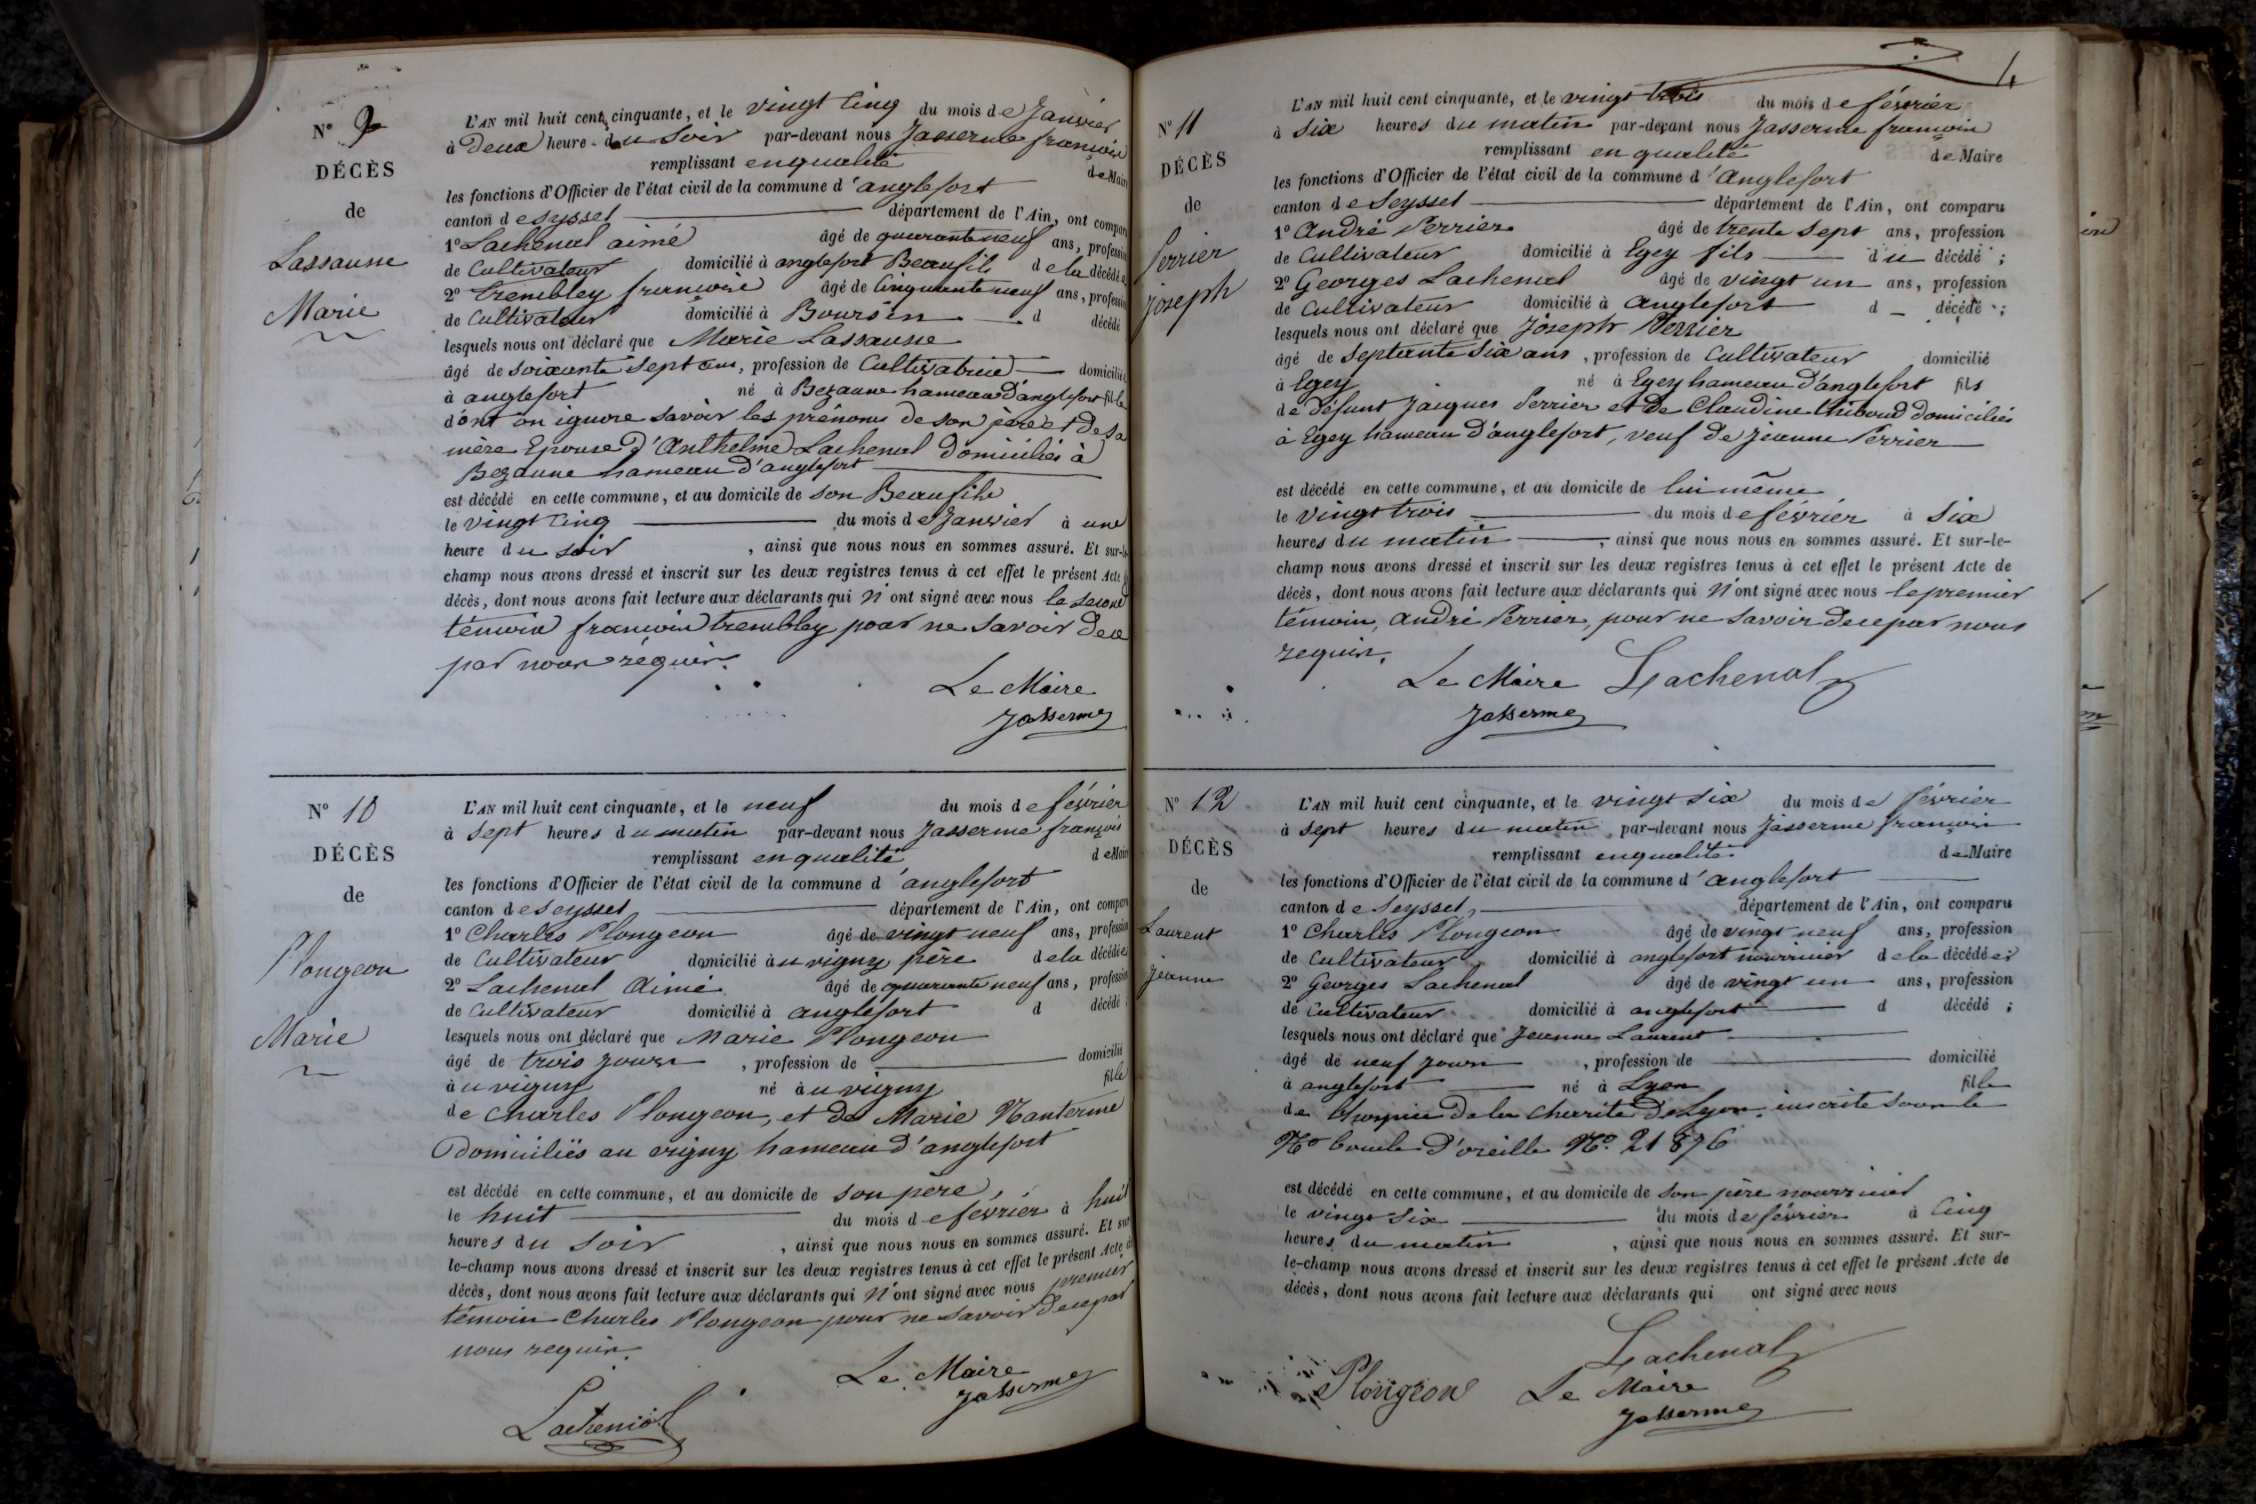 N° 9
DÉCÈS
de
Lassausse
Marie
L'AN mil huit cent cinquante, et le vingt cinq du mois de Janvier
à deux heures du soir par-devant nous Jasserme françois
remplissant en qualité de Maire
les fonctions d'Officier de l'état civil de la commune d'anglefort
canton de Seyssel département de l'Ain, ont comparu
1° Lachenal aimé âgé de quarante neuf ans, profession
de Cultivateur domicilié à anglefort Beaufils de la décédée
2° trembley françois âgé de Cinquante neuf ans, profession
de Cultivateur domicilié à Boursin d décédé
lesquels nous ont déclaré que Marie Lassausse
âgé de soixante sept ans, profession de Cultivatrice domiciliée
à anglefort né à Bezaune hameau d'anglefort fille
dont on ignore savoir les prénoms de son père et de sa
mère Epouse d'Anthelme Lachenal domiciliés à
Bezaune hameau d'anglefort
est décédé en cette commune, et au domicile de son Beaufils
le vingt Cinq du mois de Janvier à une
heure du soir, ainsi que nous nous en sommes assuré. Et sur-le-
champ nous avons dressé et inscrit sur les deux registres tenus à cet effet le présent Acte
décès, dont nous avons fait lecture aux déclarants qui n'ont signé avec nous le second
témoin françois trembley pour ne savoir de ce
par nous requis.
Le Maire
Jasserme
N° 10
DÉCÈS
de
Plongeon
Marie
L'AN mil huit cent cinquante, et le neuf du mois de février
à sept heures du matin par-devant nous Jasserme françois
remplissant en qualité de Maire
les fonctions d'Officier de l'état civil de la commune d'anglefort
canton de Seyssel département de l'Ain, ont comparu
1° Charles Plongeon âgé de vingt neuf ans, profession
de Cultivateur domicilié au vigny père de la décédée
2° Lachenal Aimé âgé de quarante neuf ans, profession
de Cultivateur domicilié à anglefort d décédé
lesquels nous ont déclaré que Marie Plongeon
âgé de trois jours, profession de domicilié
au vigny né au vigny fille
de Charles Plongeon, et de Marie Nanterme
domiciliés au vigny hameau d'anglefort
est décédé en cette commune, et au domicile de son père,
le huit du mois de février à huit
heures du soir, ainsi que nous nous en sommes assuré. Et sur
le-champ nous avons dressé et inscrit sur les deux registres tenus à cet effet le présent Acte de
décès, dont nous avons fait lecture aux déclarants qui n'ont signé avec nous premier
témoin Charles Plongeon pour ne savoir de ce par
nous requis.
Le Maire
Jasserme
Lachenal
4
N° 11
DÉCÈS
de
Perrier
joseph
L'AN mil huit cent cinquante, et le vingt trois du mois de février
à six heures du matin par-devant nous Jasserme françois
remplissant en qualité de Maire
les fonctions d'Officier de l'état civil de la commune d'Anglefort
canton de Seyssel département de l'Ain, ont comparu
1° André Perrier âgé de trente sept ans, profession
de Cultivateur domicilié à Egey fils du décédé ;
2° Georges Lachenal âgé de vingt un ans, profession
de Cultivateur domicilié à Anglefort d décédé ;
lesquels nous ont déclaré que Joseph Perrier
âgé de septante six ans, profession de Cultivateur domicilié
à Egey né à Egey hameau d'anglefort fils
de défunt Jacques Perrier et de Claudine thiboud domiciliés
à Egey hameau d'anglefort, veuf de Jeanne Perrier
est décédé en cette commune, et au domicile de lui même
le vingt trois du mois de février à Six
heures du matin, ainsi que nous nous en sommes assuré. Et sur-le-
champ nous avons dressé et inscrit sur les deux registres tenus à cet effet le présent Acte de
décès, dont nous avons fait lecture aux déclarants qui n'ont signé avec nous le premier
témoin, André Perrier, pour ne savoir de ce par nous
requis.
Le Maire Lachenal
Jasserme
N° 12
DÉCÈS
de
Laurent
Jeanne
L'AN mil huit cent cinquante, et le vingt six du mois de février
à sept heures du matin par-devant nous Jasserme françois
remplissant en qualité de Maire
les fonctions d'Officier de l'état civil de la commune d'Anglefort
canton de Seyssel, département de l'Ain, ont comparu
1° Charles Plongeon âgé de vingt neuf ans, profession
de Cultivateur domicilié à anglefort nourricier de la décédée ;
2° Georges Lachenal âgé de vingt un ans, profession
de Cultivateur domicilié à anglefort d décédé ;
lesquels nous ont déclaré que Jeanne Laurent
âgé de neuf jours, profession de domicilié
à anglefort né à Lyon fille
de l'hospice de la Charité de Lyon. inscrite sous le
N° boucle d'oreille N° 21876
est décédé en cette commune, et au domicile de son père nourricier
le vingt six du mois de février à Cinq
heures du matin, ainsi que nous nous en sommes assuré. Et sur-
le-champ nous avons dressé et inscrit sur les deux registres tenus à cet effet le présent Acte de
décès, dont nous avons fait lecture aux déclarants qui ont signé avec nous
Lachenal
Plongeon Le Maire
Jasserme